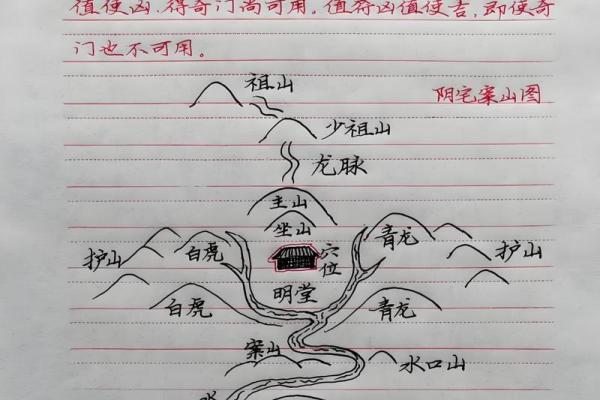 值使凶,得奇门尚可用。值符凶值使吉,即使奇
门也不可用。
祖山
阴宅案山图
少祖山
龙脉
主山
坐山
青龙
护山
白虎
穴位
护山
明堂
白虎
青龙
案山
水口山
水